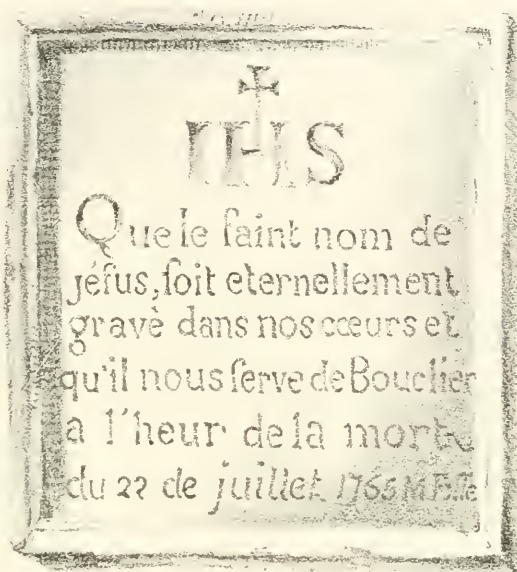 IHS
Que le ſaint nom de
jéſus, ſoit eternellement
gravè dans nos cœurs et
qu'il nous ſerve de Bouclier
a l'heur de la morte
du 22 de juillet 1766